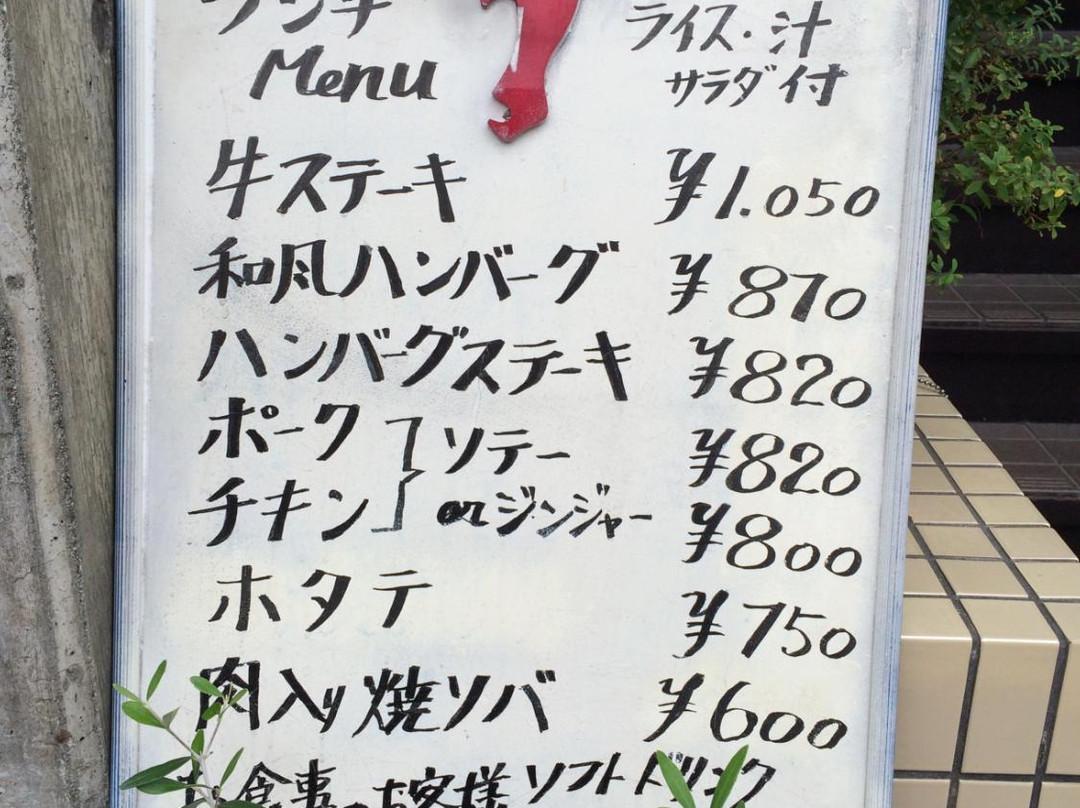 ランチ
Menu
ライス・汁
サラダ付
牛ステーキ ¥1.050
和風ハンバーグ ¥870
ハンバーグステーキ ¥820
ポーク ソテー ¥820
チキン orジンジャー ¥800
ホタテ ¥750
肉入り焼ソバ ¥600
お食事のお客様ソフトドリンク